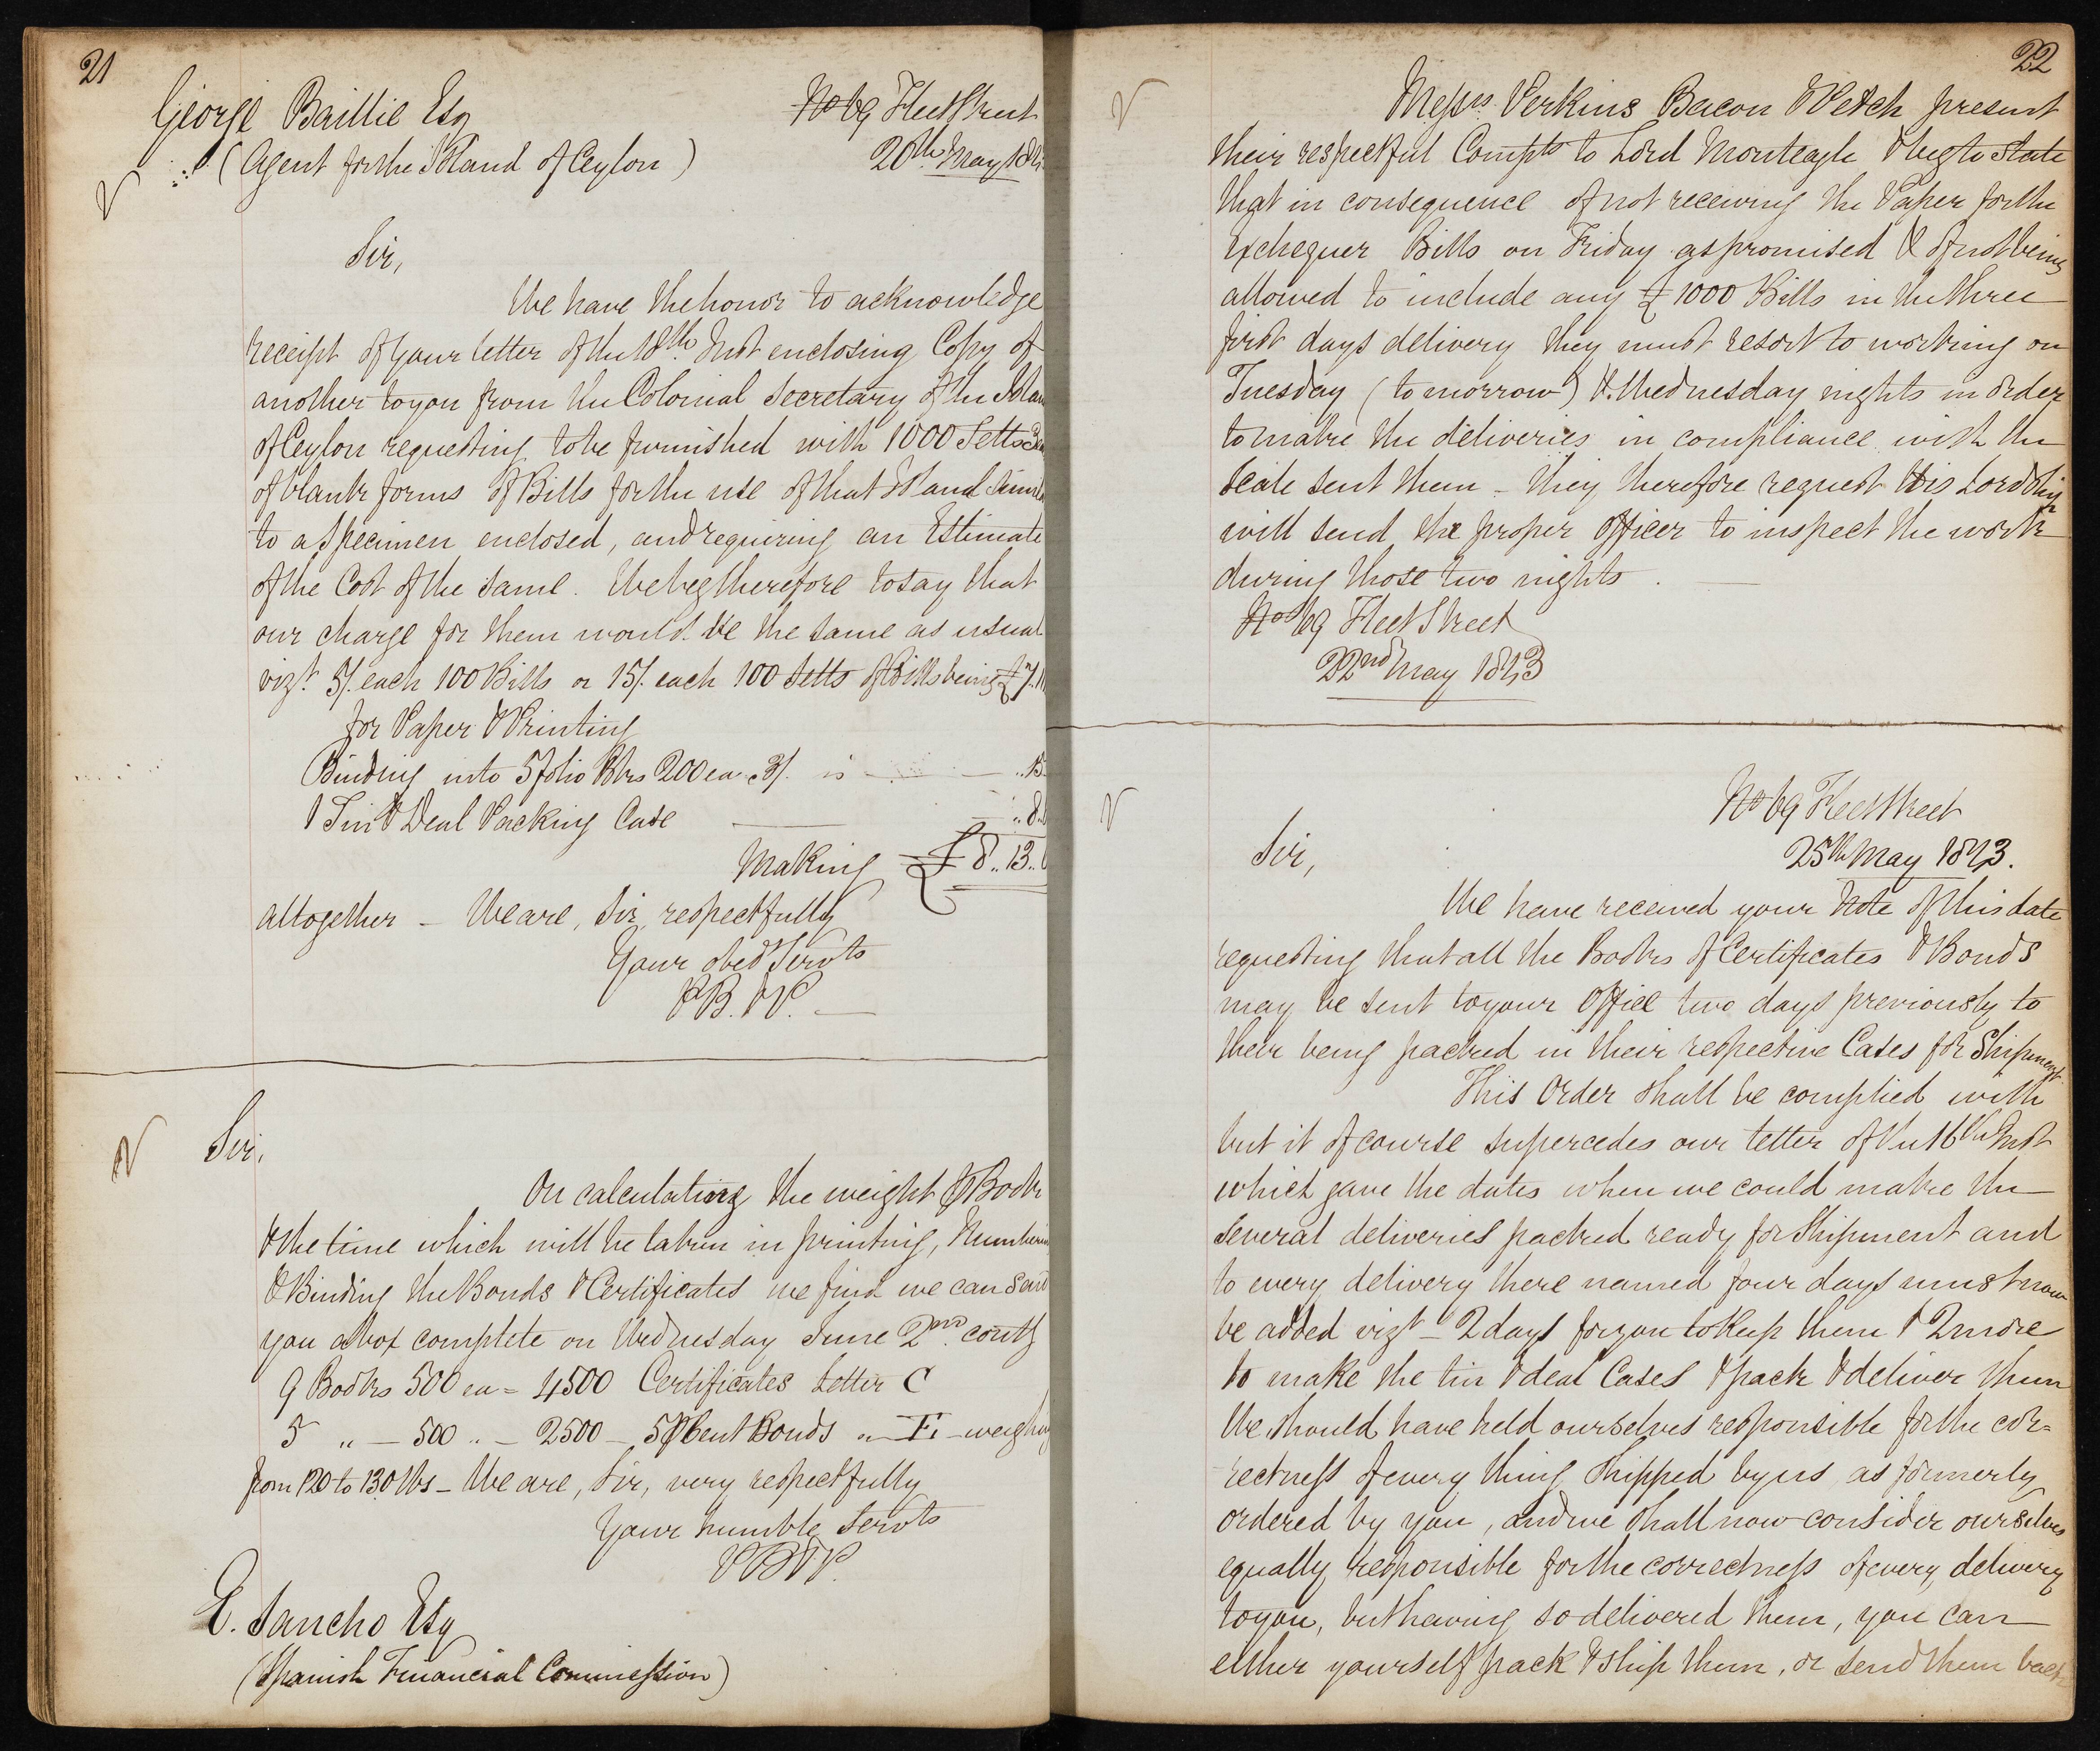 21
George Baillie Esq
No 69 Fleet Street
(Agent for the Island of Ceylon)
20th May 184
Sir,
We have the honor to acknowledge
receipt of your letter of the 18th Inst enclosing Copy of
another to you from the Colonial Secretary of the Islan
of Ceylon requesting to be furnished with 1000 Setts
of blank forms of Bills for the use of that Island simil
to a Specimen enclosed, and requiring an Estimate
of the Cost of the same. We beg therefore to say that
our charge for them would be the same as usual
vizt. 5/. each 100 Bills or 15/. each 100 Setts of Bills being £7.1
for Paper & Printing
Binding into 5 folio Bks 200 ea. 3/. is — — ..15
1 Tin & Deal Packing Case — — ..8.
Making £8..13..
altogether – We are, Sir, respectfully
Your obed Servts
PB. & P. —
Sir,
On calculating the weight of Books
& the time which will be taken in printing, Numberin
& Binding the Bonds & Certificates we find we can send
you a box complete on Wednesday June 2nd contg
9 Books 500 ea = 4500 Certificates Letter C
5 „ — 500 „ – 2500 – 5 PCent Bonds „ E – weighing
from 120 to 130 lbs – We are, Sir, very respectfully
Your humble Servts
PB & P.
E. Sancho Esq
(Spanish Financial Commission)
22
Messrs. Perkins Bacon & Petch present
their respectful Compts to Lord Monteagle & beg to state
that in consequence of not receiving the Paper for the
Exchequer Bills on Friday as promised & of not being
allowed to include any £1000 Bills in the three
first days delivery they must resort to working on
Tuesday (tomorrow) & Wednesday nights in order
to make the deliveries in compliance with the
scale sent them – they therefore request His Lordship
will send the proper officer to inspect the work
during those two nights. —
No 69 Fleet Street
22nd May 1843
No 69 Fleet Street
Sir,
25th May 1843.
We have received your Note of this date
requesting that all the Books of Certificates & Bonds
may be sent to your Office two days previously to
their being packed in their respective Cases for Shipment
This Order shall be complied with
but it of course supercedes our letter of the 16th Inst
which gave the dates when we could make the
several deliveries packed ready for Shipment and
to every delivery there named four days must now
be added vizt – 2 days for you to keep them & 2 more
to make the tin & deal Cases & pack & deliver them
We should have held ourselves responsible for the cor=
rectness of every thing shipped by us as formerly
ordered by you, and we shall now consider ourselves
equally responsible for the correctness of every delivery
to you, but having so delivered them, you can
either yourself pack & ship them, or send them back